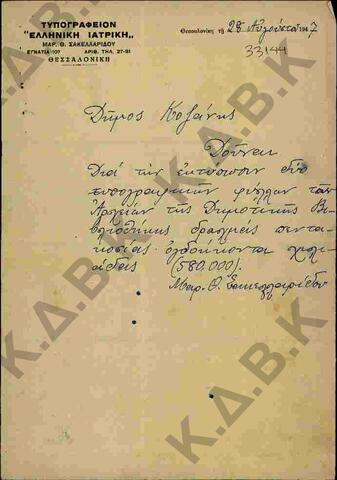 ΤΥΠΟΓΡΑΦΕΙΟΝ
"ΕΛΛΗΝΙΚΗ ΙΑΤΡΙΚΗ„
ΜΑΡ. Θ. ΣΑΚΕΛΛΑΡΙΔΟΥ
ΕΓΝΑΤΙΑ 107 ΑΡΙΘ. ΤΗΛ. 27-91
ΘΕΣΣΑΛΟΝΙΚΗ
Θεσσαλονίκη τῇ 28 Αὐγούστου 1947
33144
Δῆμος Κοζάνης
Δοῦναι
Διά τήν ἐκτύπωσιν δύο
τυπογραφικῶν φύλλων τῶν
Ἀρχείων τῆς Δημοτικῆς Βι-
βλιοθήκης δραχμές πεντα-
κοσίας ὀγδοήκοντα χιλι-
άδας (580.000).
Μαρ. Θ. Σακελλαρίδου
Κ.Δ.Β.Κ
Κ.Δ.Β.Κ
Κ.Δ.Β.Κ